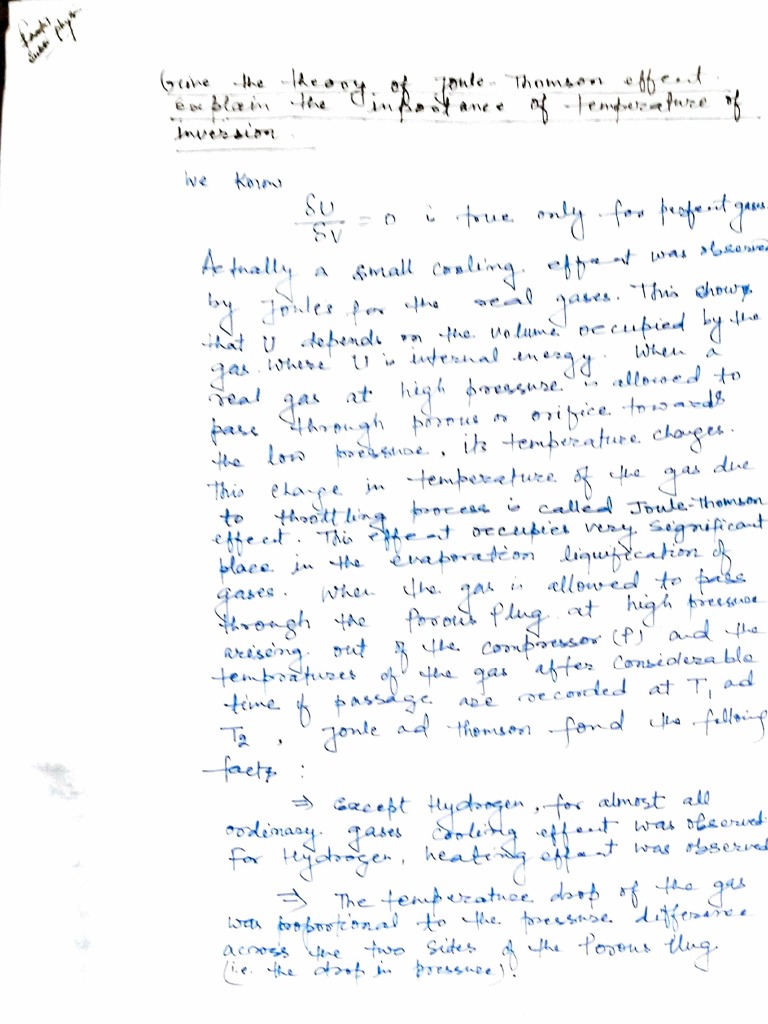 Subsi phys
Give the theory of Joule-Thomson effect.
explain the importance of temperature of
inversion.
We know
δU/δV = 0 is true only for perfect gases.
Actually a small cooling effect was observed
by Joules for the real gases. This shows
that U depends on the volume occupied by the
gas. where U is internal energy. When a
real gas at high pressure is allowed to
pass through porous or orifice towards
the low pressure, its temperature changes.
This change in temperature of the gas due
to throttling process is called Joule-Thomson
effect. This effect occupies very significant
place in the evaporation liquification of
gases. When the gas is allowed to pass
through the Porous Plug at high pressure
arising out of the compressor (P) and the
tempratures of the gas after considerable
time of passage are recorded at T1 ad
T2, Joule ad Thomson fond the folloing
facts :
⇒ Except Hydrogen, for almost all
ordinary gases cooling effect was observed.
For Hydrogen, heating effect was observed
⇒ The temperature drop of the gas
was proportional to the pressure difference
across the two sides of the Porous Plug
(i.e. the drop in pressure).